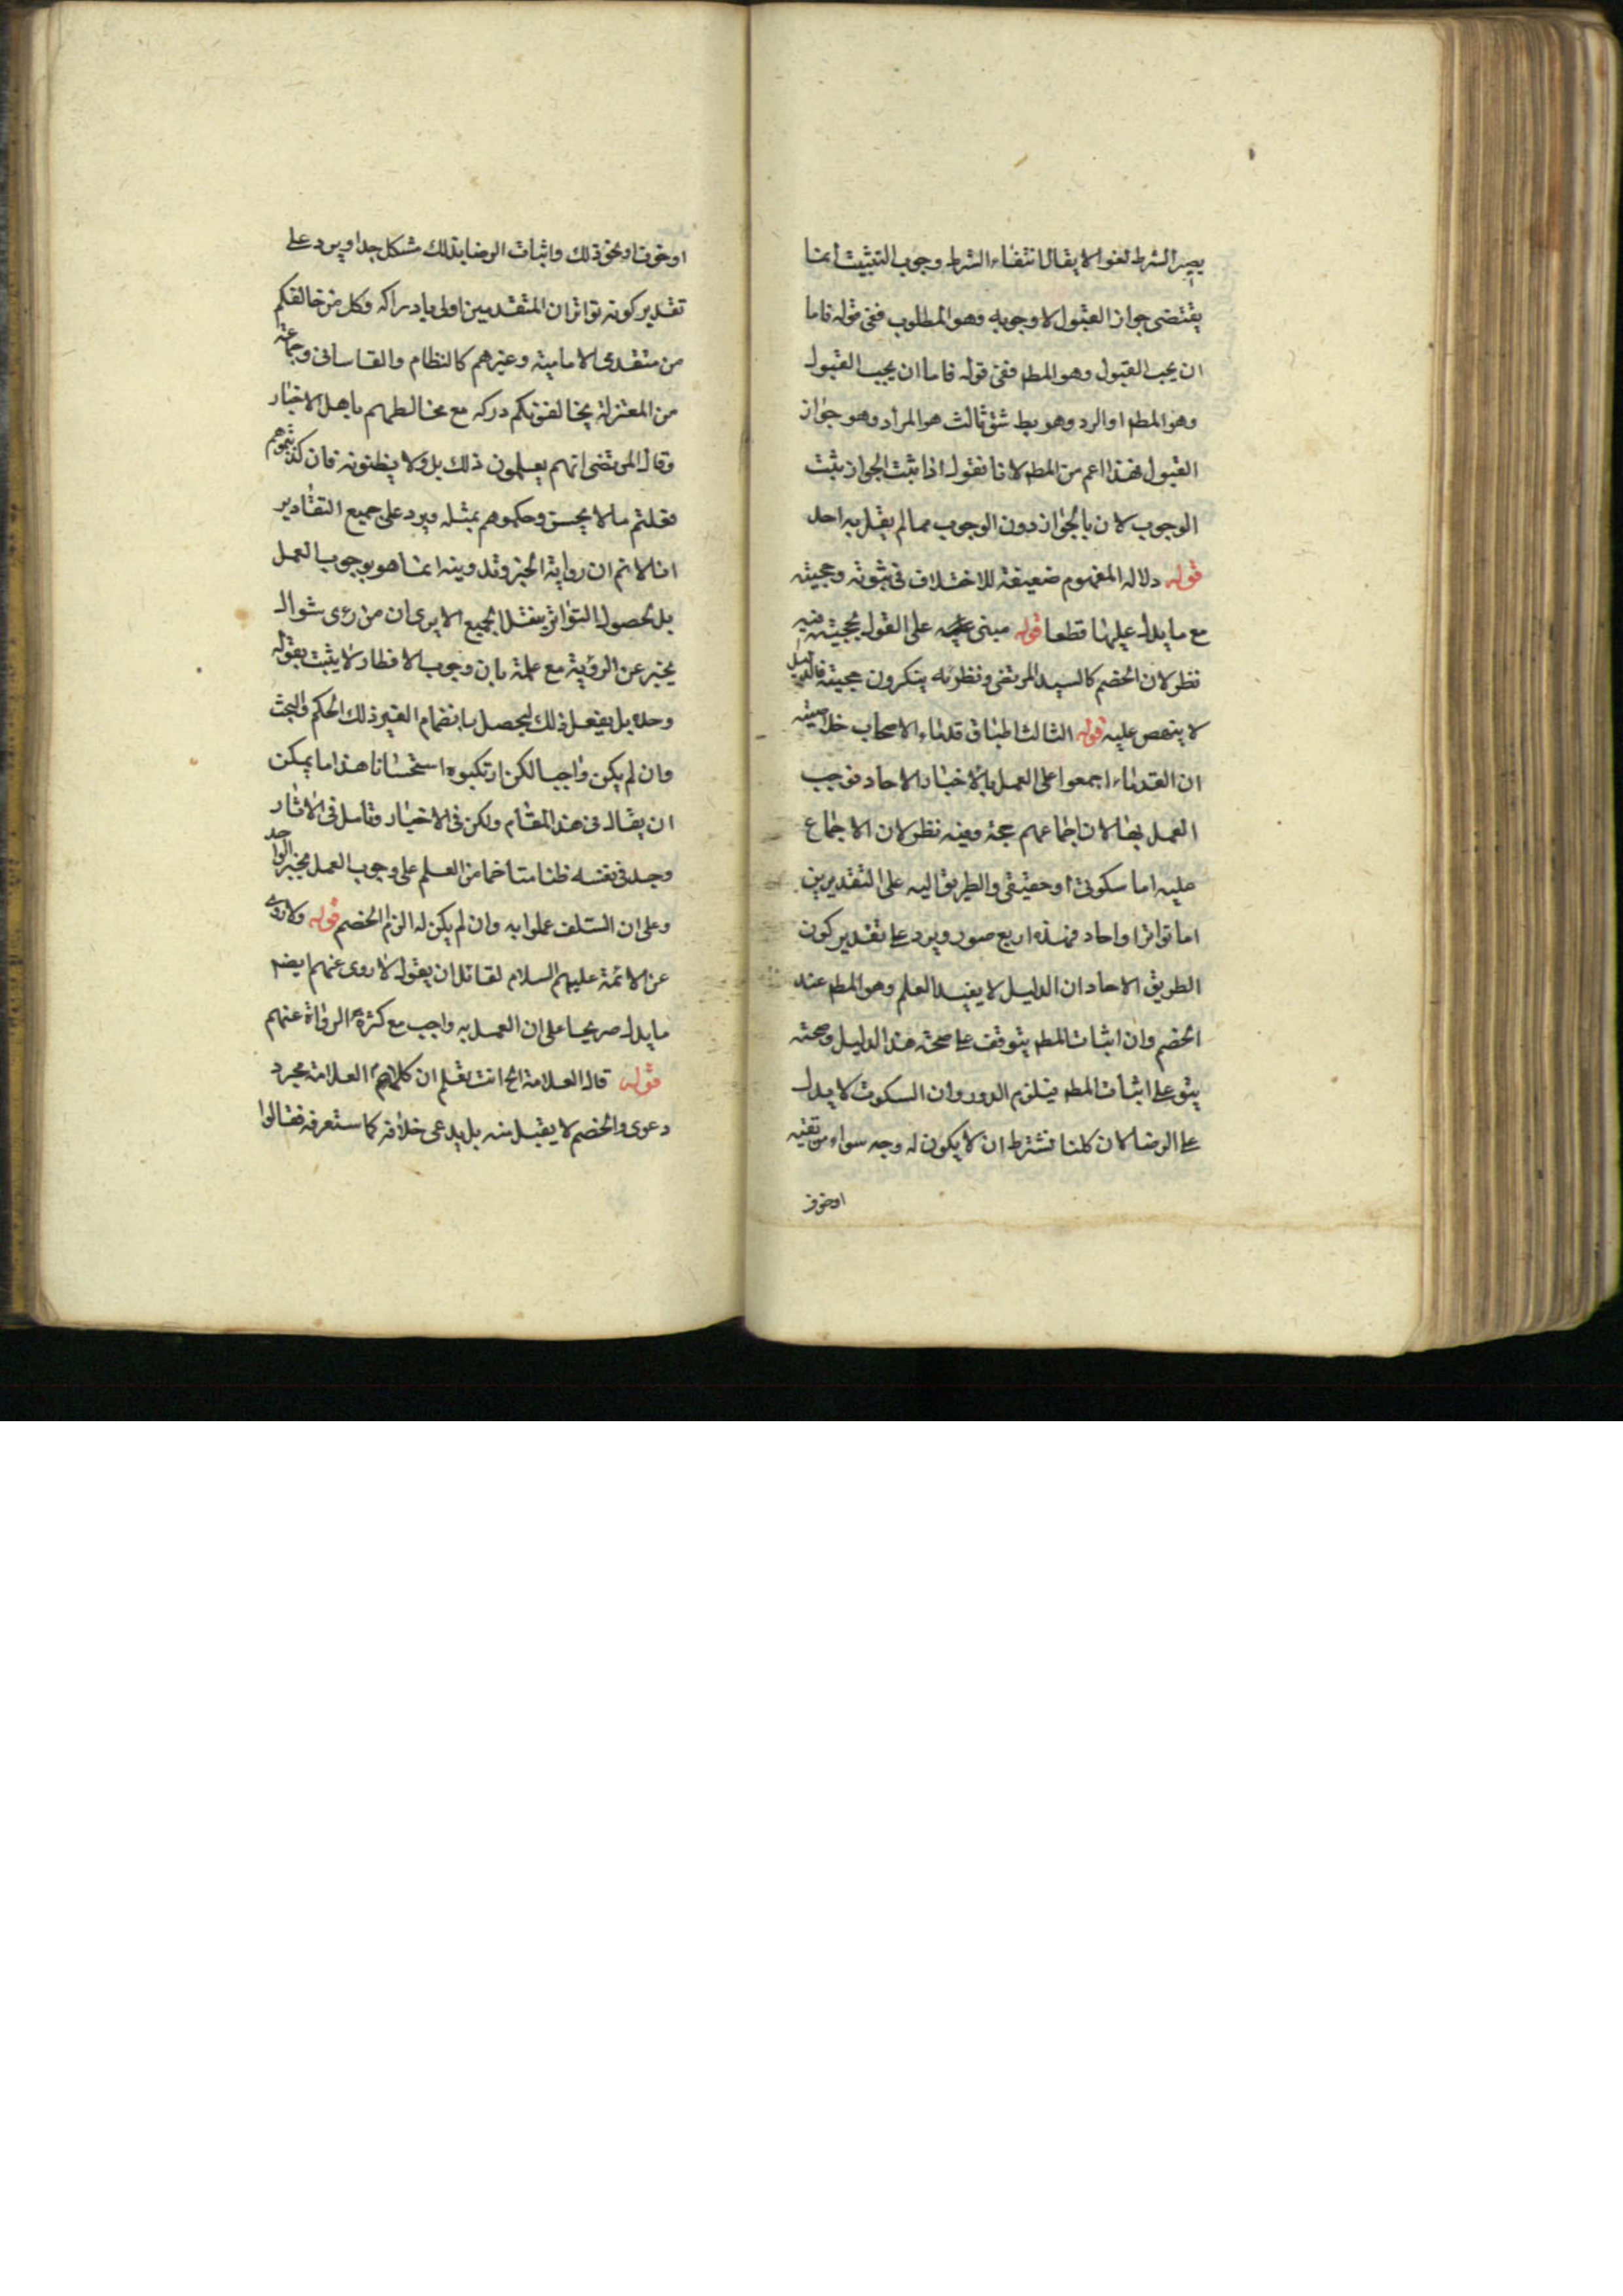 يصير الشرط لغوا لا يقال انتفاء الشرط وجوب التثبيت انما
يقتضى جواز القبول لا وجوبه وهو المطلوب ففى قوله فاما
ان يجب القبول وهو المط ففى قوله فاما ان يجب القبول
وهو المط او الرد وهو بط شق ثالث هو المراد وهو جواز
القبول فهذا اعم من المط لانا نقول اذا ثبت الجواز يثبت
الوجوب لان بالجواز دون الوجوب مما لم يقل به احد
قوله دلالة المفهوم ضعيفة للاختلاف فى ثبوته وحجيته
مع ما يدل عليها قطعا قوله مبنى على القول بحجيته فيه
نظر لان الخصم كالسيد المرتضى ونظرائه ينكرون حجيته فالدليل
لا ينهض عليه قوله الثالث اطباق قدماء الاصحاب خلاصته
ان القدماء اجمعوا على العمل بالاخبار الاحاد فوجب
العمل بها لان اجماعهم حجة وفيه نظر لان الاجماع
عليه اما سكوتى او حقيقى والطريق اليه على التقديرين
اما تواترا واحاد فهذه اربع صور ويرد على تقدير كون
الطريق الاحاد ان الدليل لا يفيد العلم وهو المط عند
الخصم وان اثبات المط يتوقف على صحة هذا الدليل وصحته
يتو على اثبات المط فيلزم الدور وان السكوت لا يدل
على الرضا لان كلنا نشترط ان لا يكون له وجه سواء من تقيه
او خوف
او خوف او نحو ذلك واثبات الرضا بذلك مشكل جدا ويرد على
تقدير كونه تواترا ان المتقدمين اولى بادراكه وكل من خالفكم
من متقدمى الامامية وغيرهم كالنظام والقاسانى وجماعة
من المعتزلة يخالفونكم دركه مع مخالطهم باهل الاخبار
وقال المرتضى انهم يعلمون ذلك بل ولا يظنونه فان كذبتموهم
فقلتم ما لا يحسن وحكموهم بمثله ويرد على جميع التقادير
انا لا نم ان رواية الخبر وتدوينه انما هو بوجوب العمل
بل لحصول التواتر بنقل الجميع الا يرى ان من رءى شوال
يخبر عن الرؤية مع علمه بان وجوب الافطار لا يثبت بقوله
وحده بل يفعل ذلك ليحصل بانضمام الغير ذلك الحكم والبحث
وان لم يكن واجبا لكن ارتكبوه استحسانا هذا ما يمكن
ان يقال فى هذا المقام ولكن فى الاخبار وتامل فى الاثار
وجد فى نفسه ظنا متاخما من العلم على وجوب العمل بخبر الواحد
وعلى ان السلف عملوا به وان لم يكن له الزام الخصم قوله ولا روى
عن الائمة عليهم السلام لقائل ان يقول لا روى عنهم ايضا
ما يدل صريحا على ان العمل به واجب مع كثرة الرواة عنهم
قوله قال العلامة الخ انت تعلم ان كلام العلامة مجرد
دعوى والخصم لا يقبل منه بل يدعى خلافه كما ستعرفه فقالوا